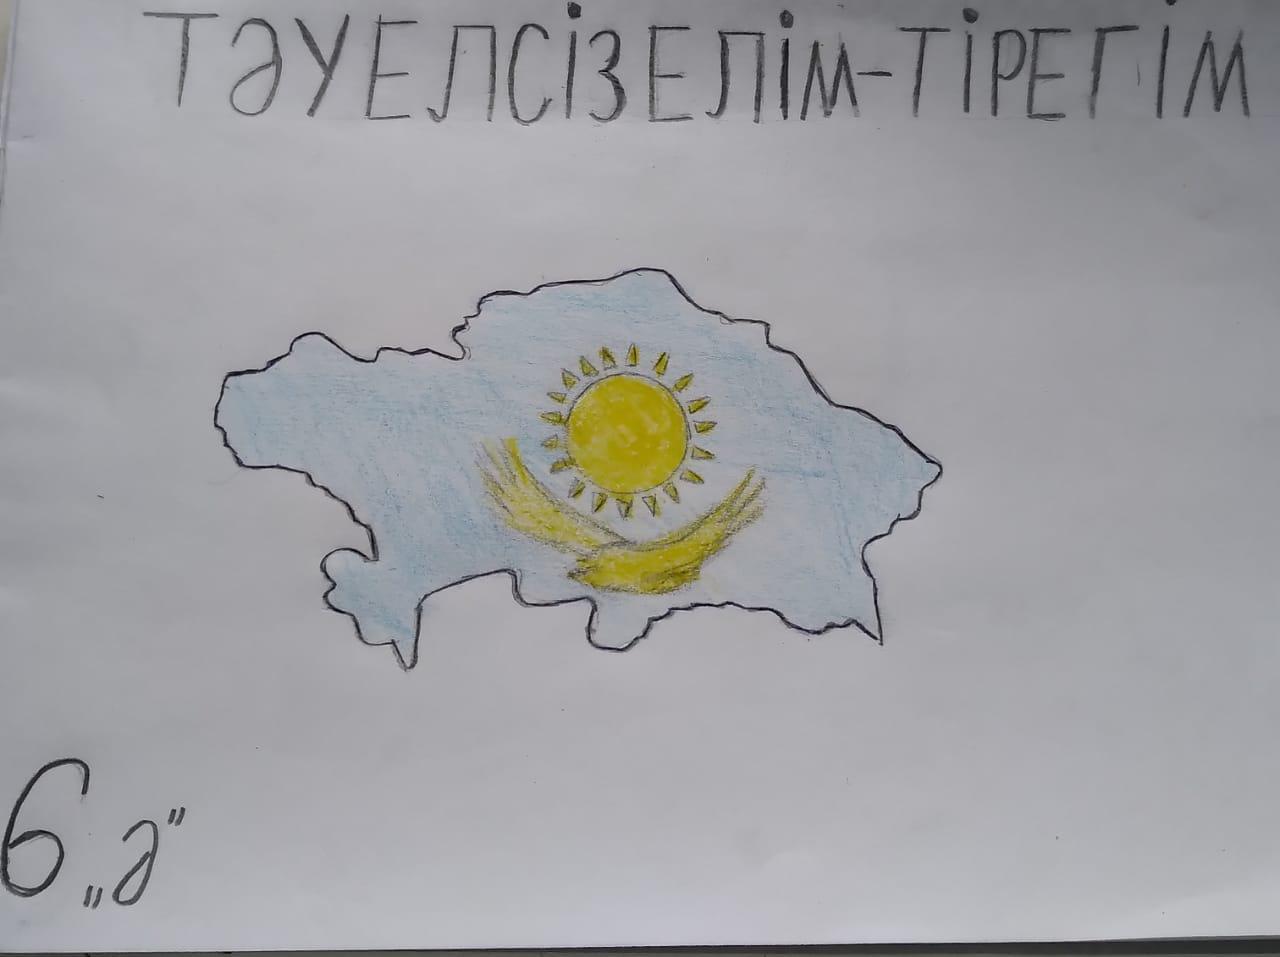 ТӘУЕЛСІЗЕЛІМ-ТІРЕГІМ
6 „ә"